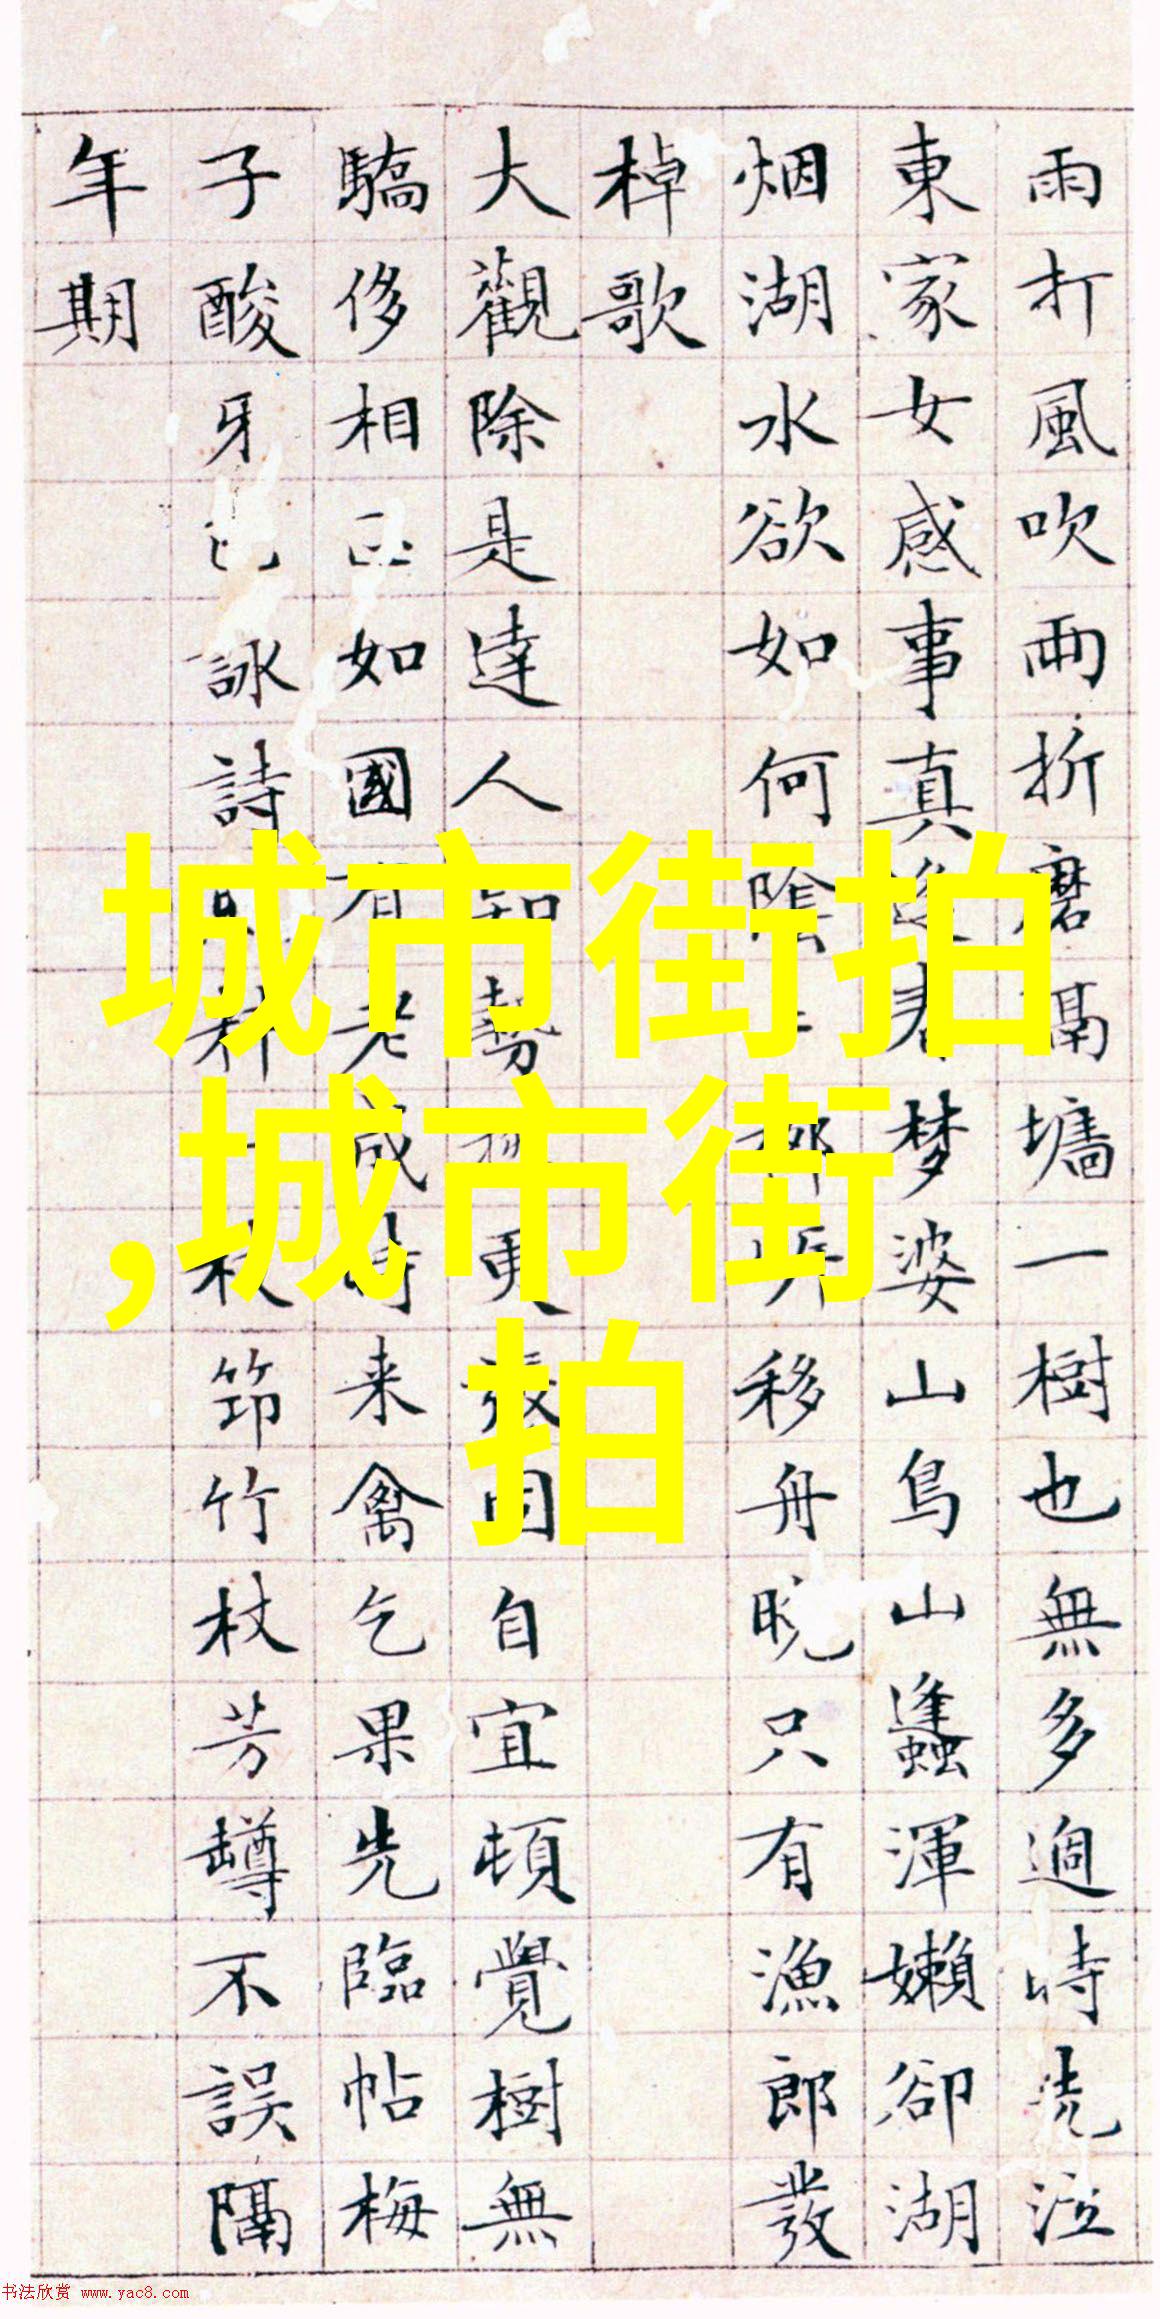 雨打風吹兩折磨隔墻一樹也無多過時洗泣
東家女感事真逢春梦婆山鳥山蠭渾嬾卻湖
烟湖水欲如何陰移舟晚只有漁郎發
棹歌
大觀除是達人知勢更發固自宜頓覺樹無
驕侈相如國有老成時来禽乞果先臨帖梅
子酸牙詠詩杖筇竹杖芳罇不誤隔
年期
城市街拍
,城市街
拍
书法欣赏 www.yac8.com